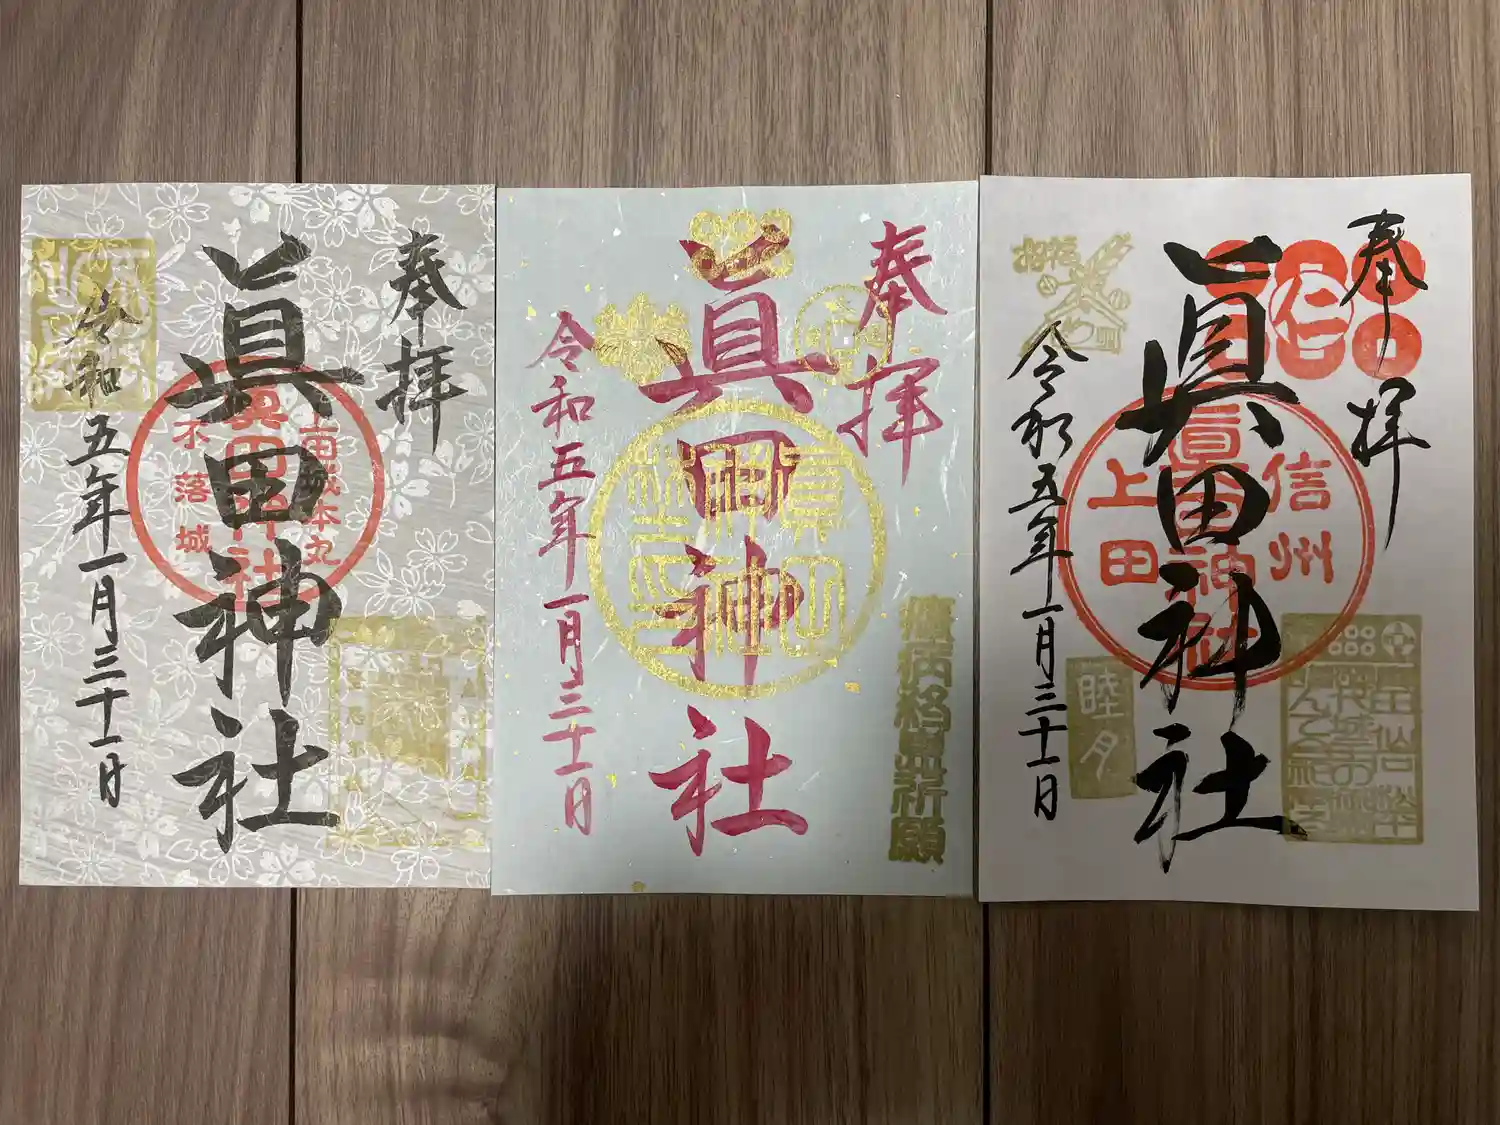 奉拝
眞田神社
令和五年一月三十一日
上田城本丸
眞田神社
不落城
奉拝
眞田神社
令和五年一月三十一日
眞田神社
疫病移患祈願
奉拝
眞田神社
令和五年一月三十一日
仁
信州
眞田神社
上田
招福
睦月